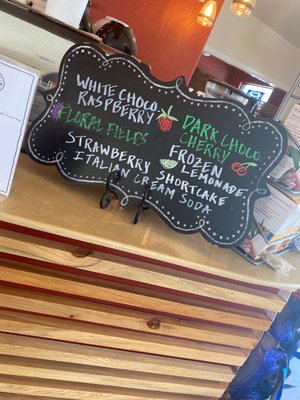 WHITE CHOCO
RASPBERRY
FLORAL FIELDS
DARK CHOCO
CHERRY
FROZEN
LEMONADE
STRAWBERRY SHORTCAKE
ITALIAN CREAM SODA